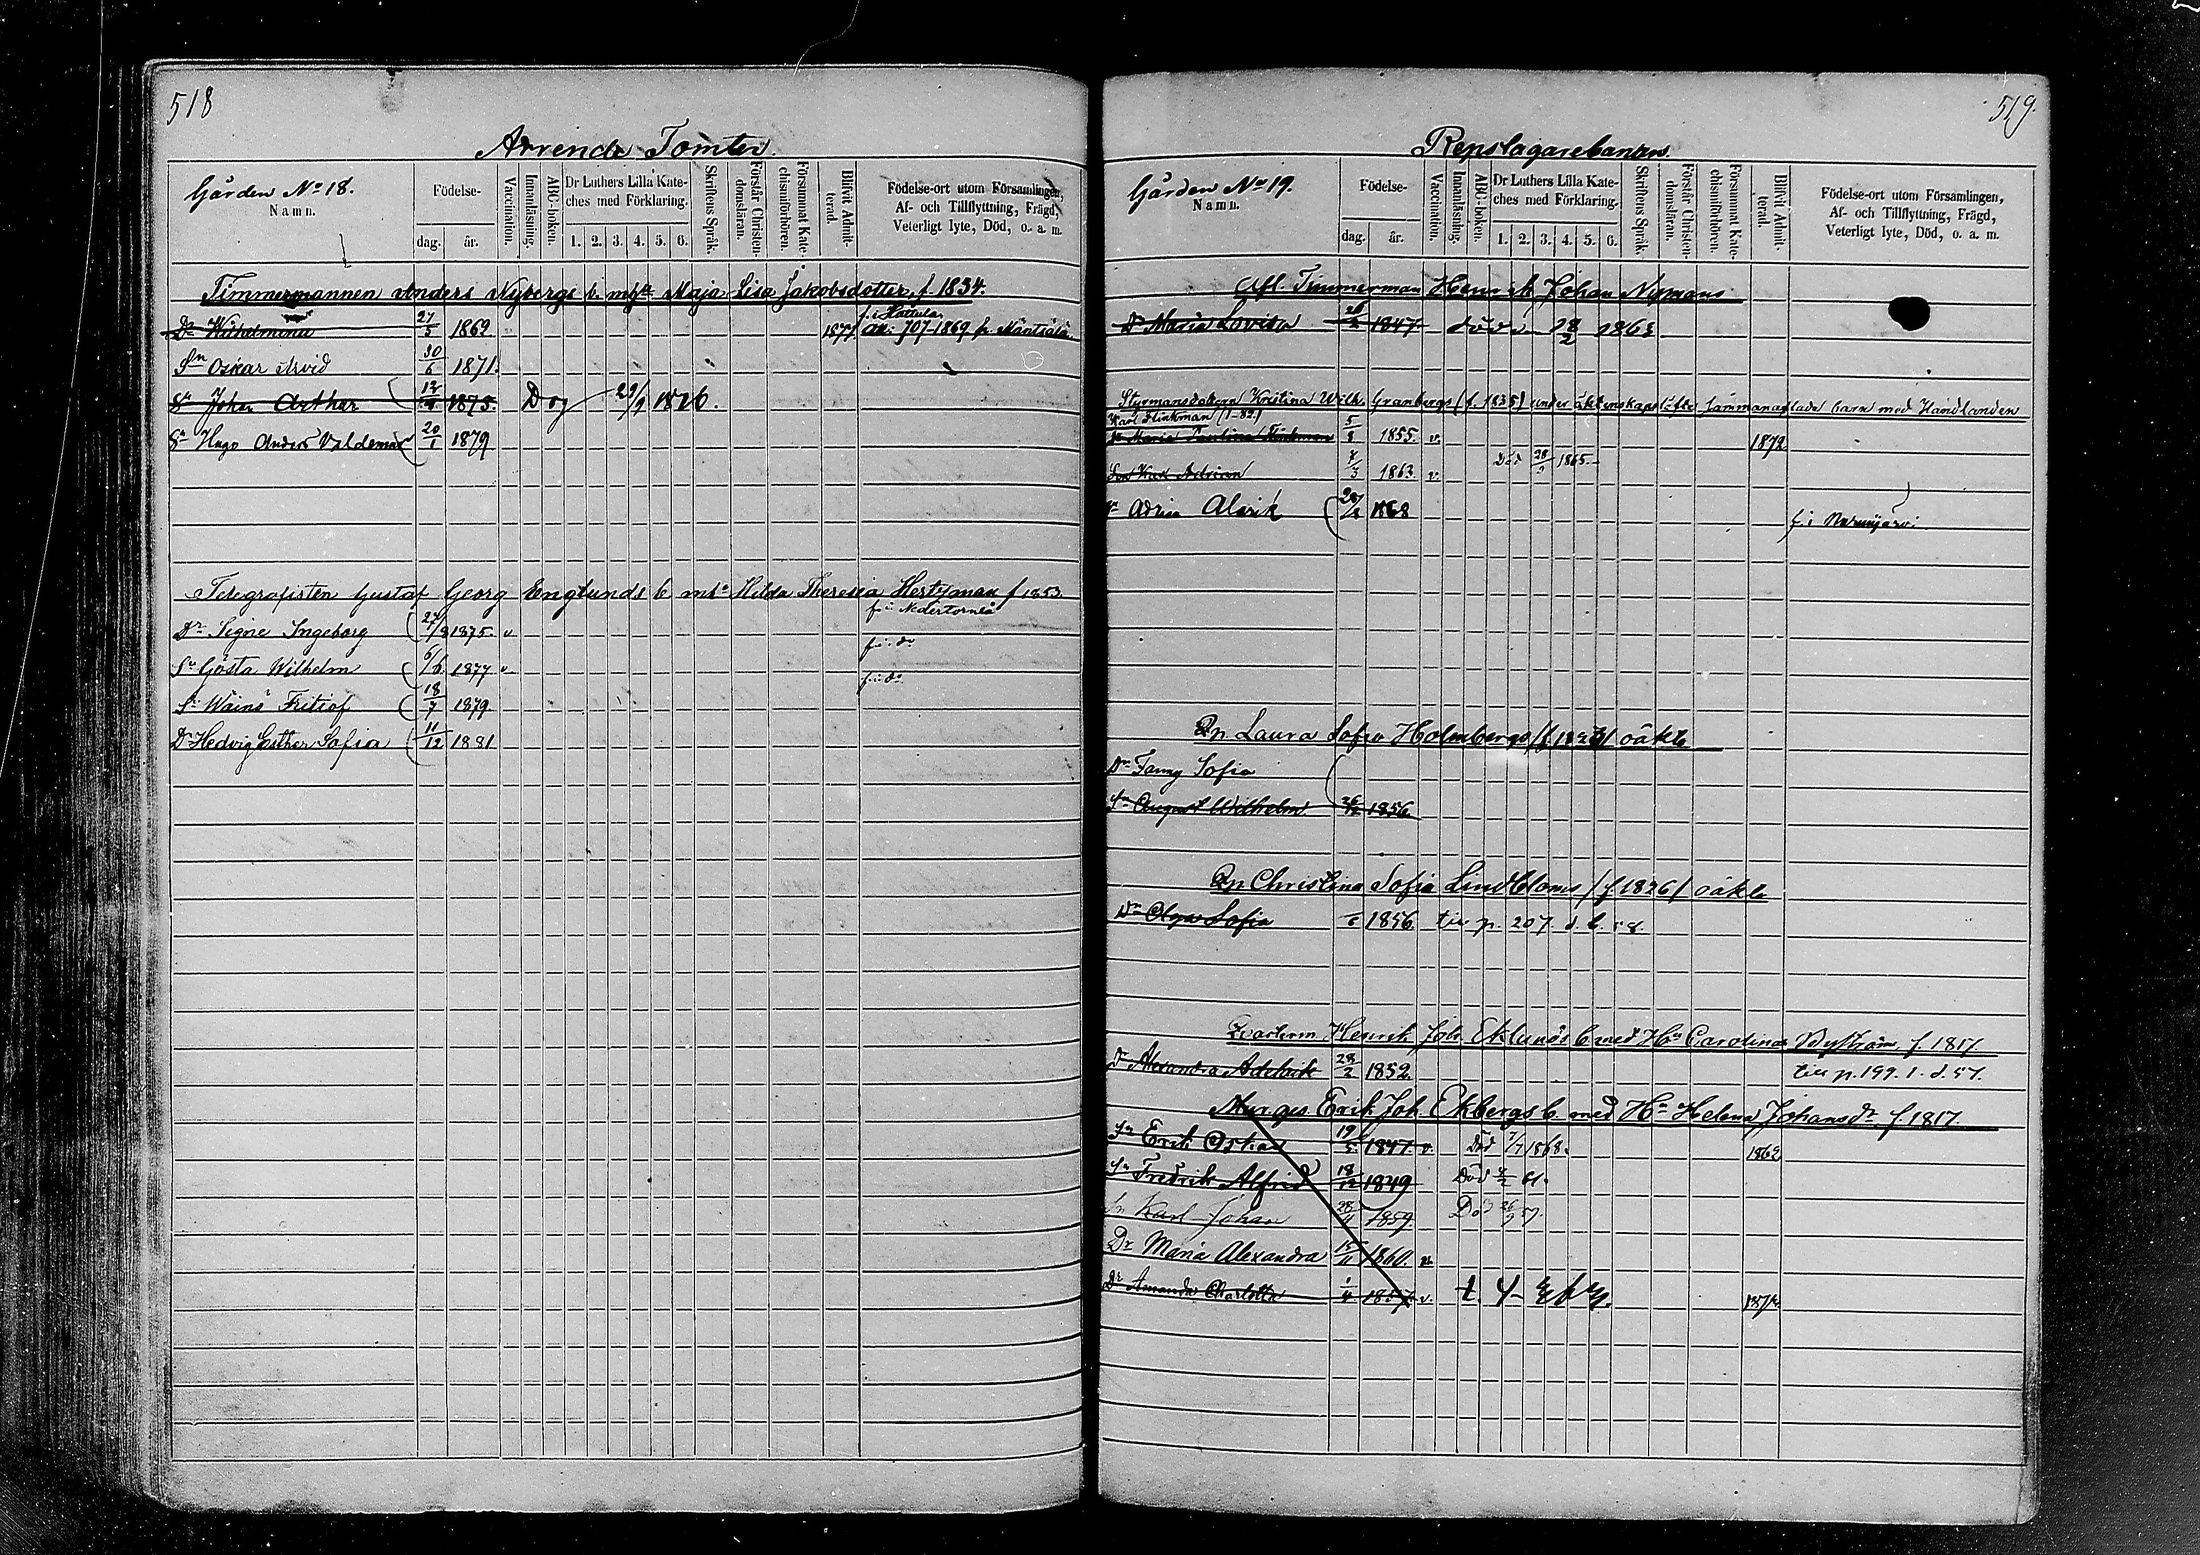 518
Arrende Tomter.
Gården No 18.
Namn.
Födelse-
dag.
år.
Vaccination.
Innanläsning.
ABC-boken.
Dr Luthers Lilla Kate-
ches med Förklaring.
1. 2. 3. 4. 5. 6.
Skriftens Språk.
Förstår Christen-
domsläran.
Försummat Kate-
chismiförhören.
Blifvit Admit-
terad.
Födelse-ort utom Församlingen,
Af- och Tillflyttning, Frägd,
Veterligt lyte, Död, o. a. m.
Timmermannen Anders Nybergs b. m. Maja Lisa Jakobsdotter f 1834.
f. i Hattula
Dr Wilhelmina 27/5 1862 1877 Att. 707-1869 fr Mäntsälä.
Sn Oskar Arvid 30/6 1871.
Sn Johan Arthur 1875. Dog 29/9 1876.
Sn Hugo Anders Valdemar 20/1 1879
Telegrafisten Gustaf Georg Englunds b. m. Hilda Theresia f 1853.
f. i Nedertorneå
Dr Signe Ingeborg 27/8 1875. v
f. i do
Sn Gösta Wilhelm 6/6 1877 v
f. i do
Sn Wäinö Fritiof 18/7 1879.
Dr Hedvig Esther Sofia 11/12 1881
519.
Repslagarebanan.
Gården No 19.
Namn.
Födelse-
dag.
år.
Vaccination.
Innanläsning.
ABC-boken.
Dr Luthers Lilla Kate-
ches med Förklaring.
1. 2. 3. 4. 5. 6.
Skriftens Språk.
Förstår Christen-
domsläran.
Försummat Kate-
chismiförhören.
Blifvit Admit-
terad.
Födelse-ort utom Församlingen,
Af- och Tillflyttning, Frägd,
Veterligt lyte, Död, o. a. m.
Afl. Timmerman Henrik Johan Nymans
Dr Maria Lovisa 1847 död 18/2 1863
Kristina Wilh. Granbergs (f. 1835) under äktenskapslöfte sammanaflade barn med Handlanden
Karl Flinkman
Dr Maria Paulina Flinkman 5/8 1855. v. 1872
Adrian 1863 v. Död 1865.
Sn Alarik 1868
f. i Nurmijärvi
Qn Laura Sofia Holmbergs oäkta
Dr Fanny Sofia
Sn August Wilhelm 1856
Qn Christina Sofia Lindbloms (f 1826) oäkta
Dr Olga Sofia 1856. till p. 207. d. b. 58.
Henrik Joh. Eklunds b med Hu Carolina Byström f. 1817.
Dr Alexandra Adelaide 28/2 1852. till p. 199. 1. d. 57.
Erik Joh. Ekbergs b. med Hu Helena Johansdr f. 1817.
Sn Erik Oskar 19/5 1847. v. Död 7/7 1868. 1862
Sn Fredrik Alfred 18/12 1849 Död 61.
Sn Karl Johan 28/11 1859 Död
Dr Maria Alexandra 1860. v.
Dr Amanda Charlotta 1/4 1857 v.